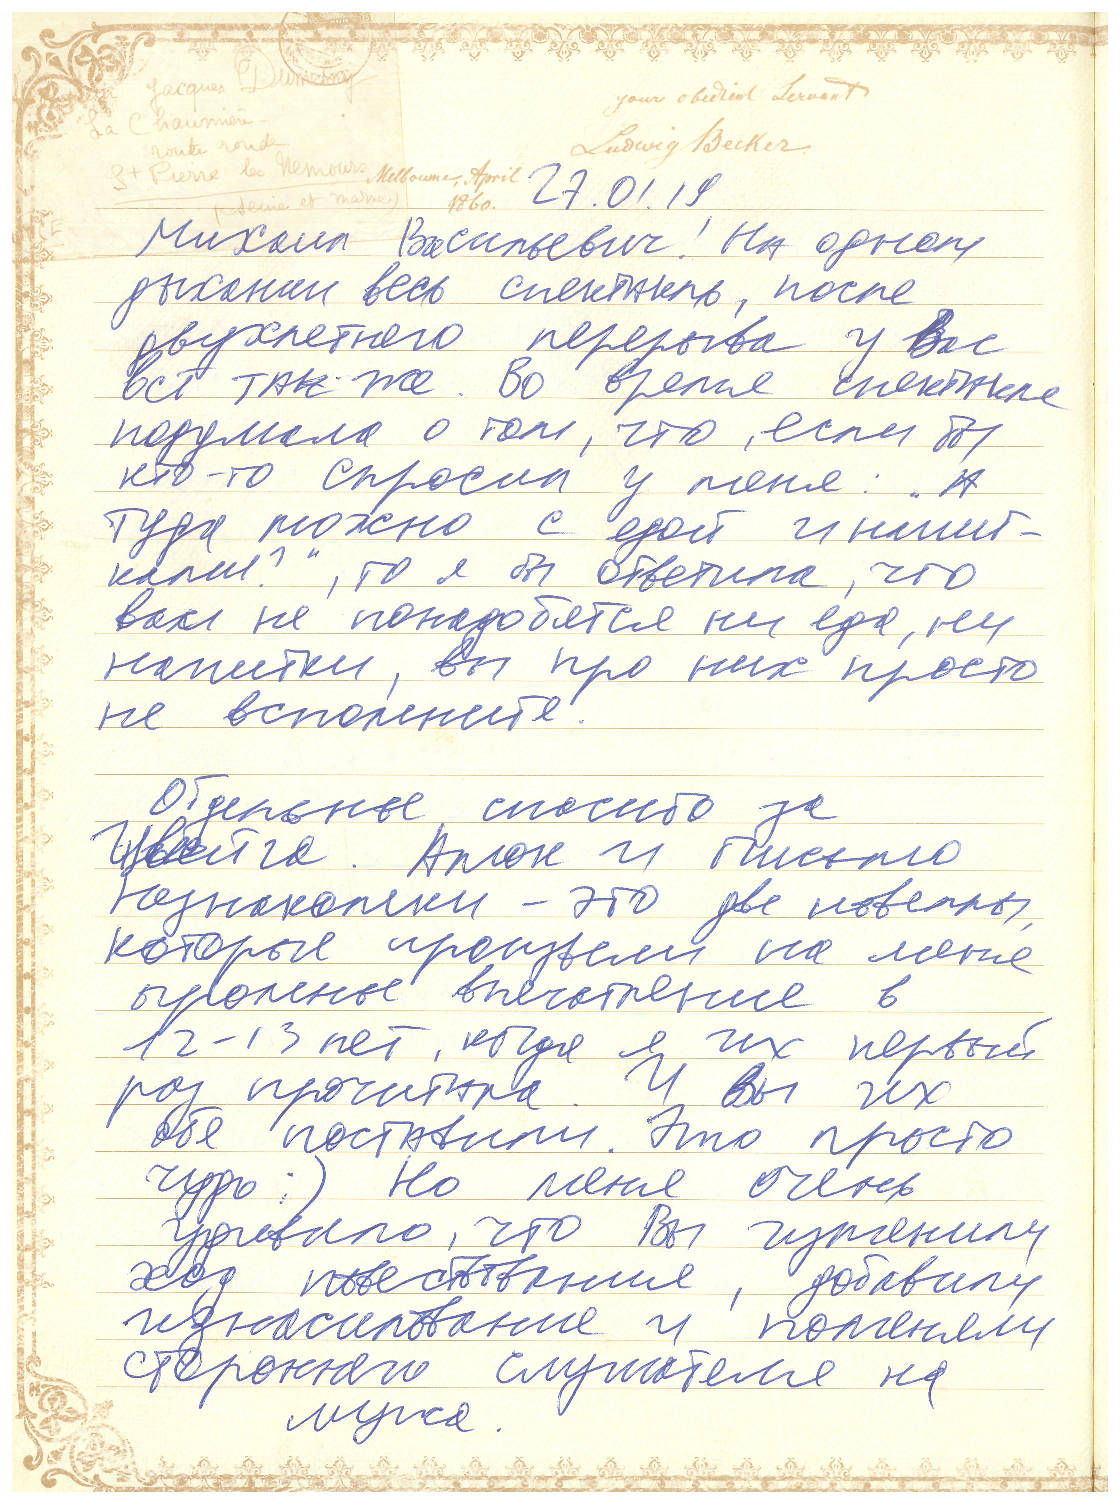 Jacques Dumesny
La Chaumière
route ronde
St Pierre les Nemours
(Seine et Marne)
your obedient Servant
Ludwig Becker.
Melbourne, April
1860.
27.01.19
Михаил Васильевич! На одном
дыхании весь спектакль, после
двухлетнего перерыва у Вас
всё так же. Во время спектакля
подумала о том, что, если бы
кто-то спросил у меня: „А
туда можно с едой и напит-
ками?“, то я бы ответила, что
вам не понадобятся ни еда, ни
напитки, вы про них просто
не вспомните.
Отдельное спасибо за
Цвейга. Амок и Письмо
Незнакомки – это две новеллы,
которые произвели на меня
огромное впечатление в
12-13 лет, когда я их первый
раз прочитала. И Вы их
обе поставили. Это просто
чудо :) Но меня очень
удивило, что Вы изменили
ход повествования, добавили
изнасилование и поменяли
стороннего слушателя на
мужа.